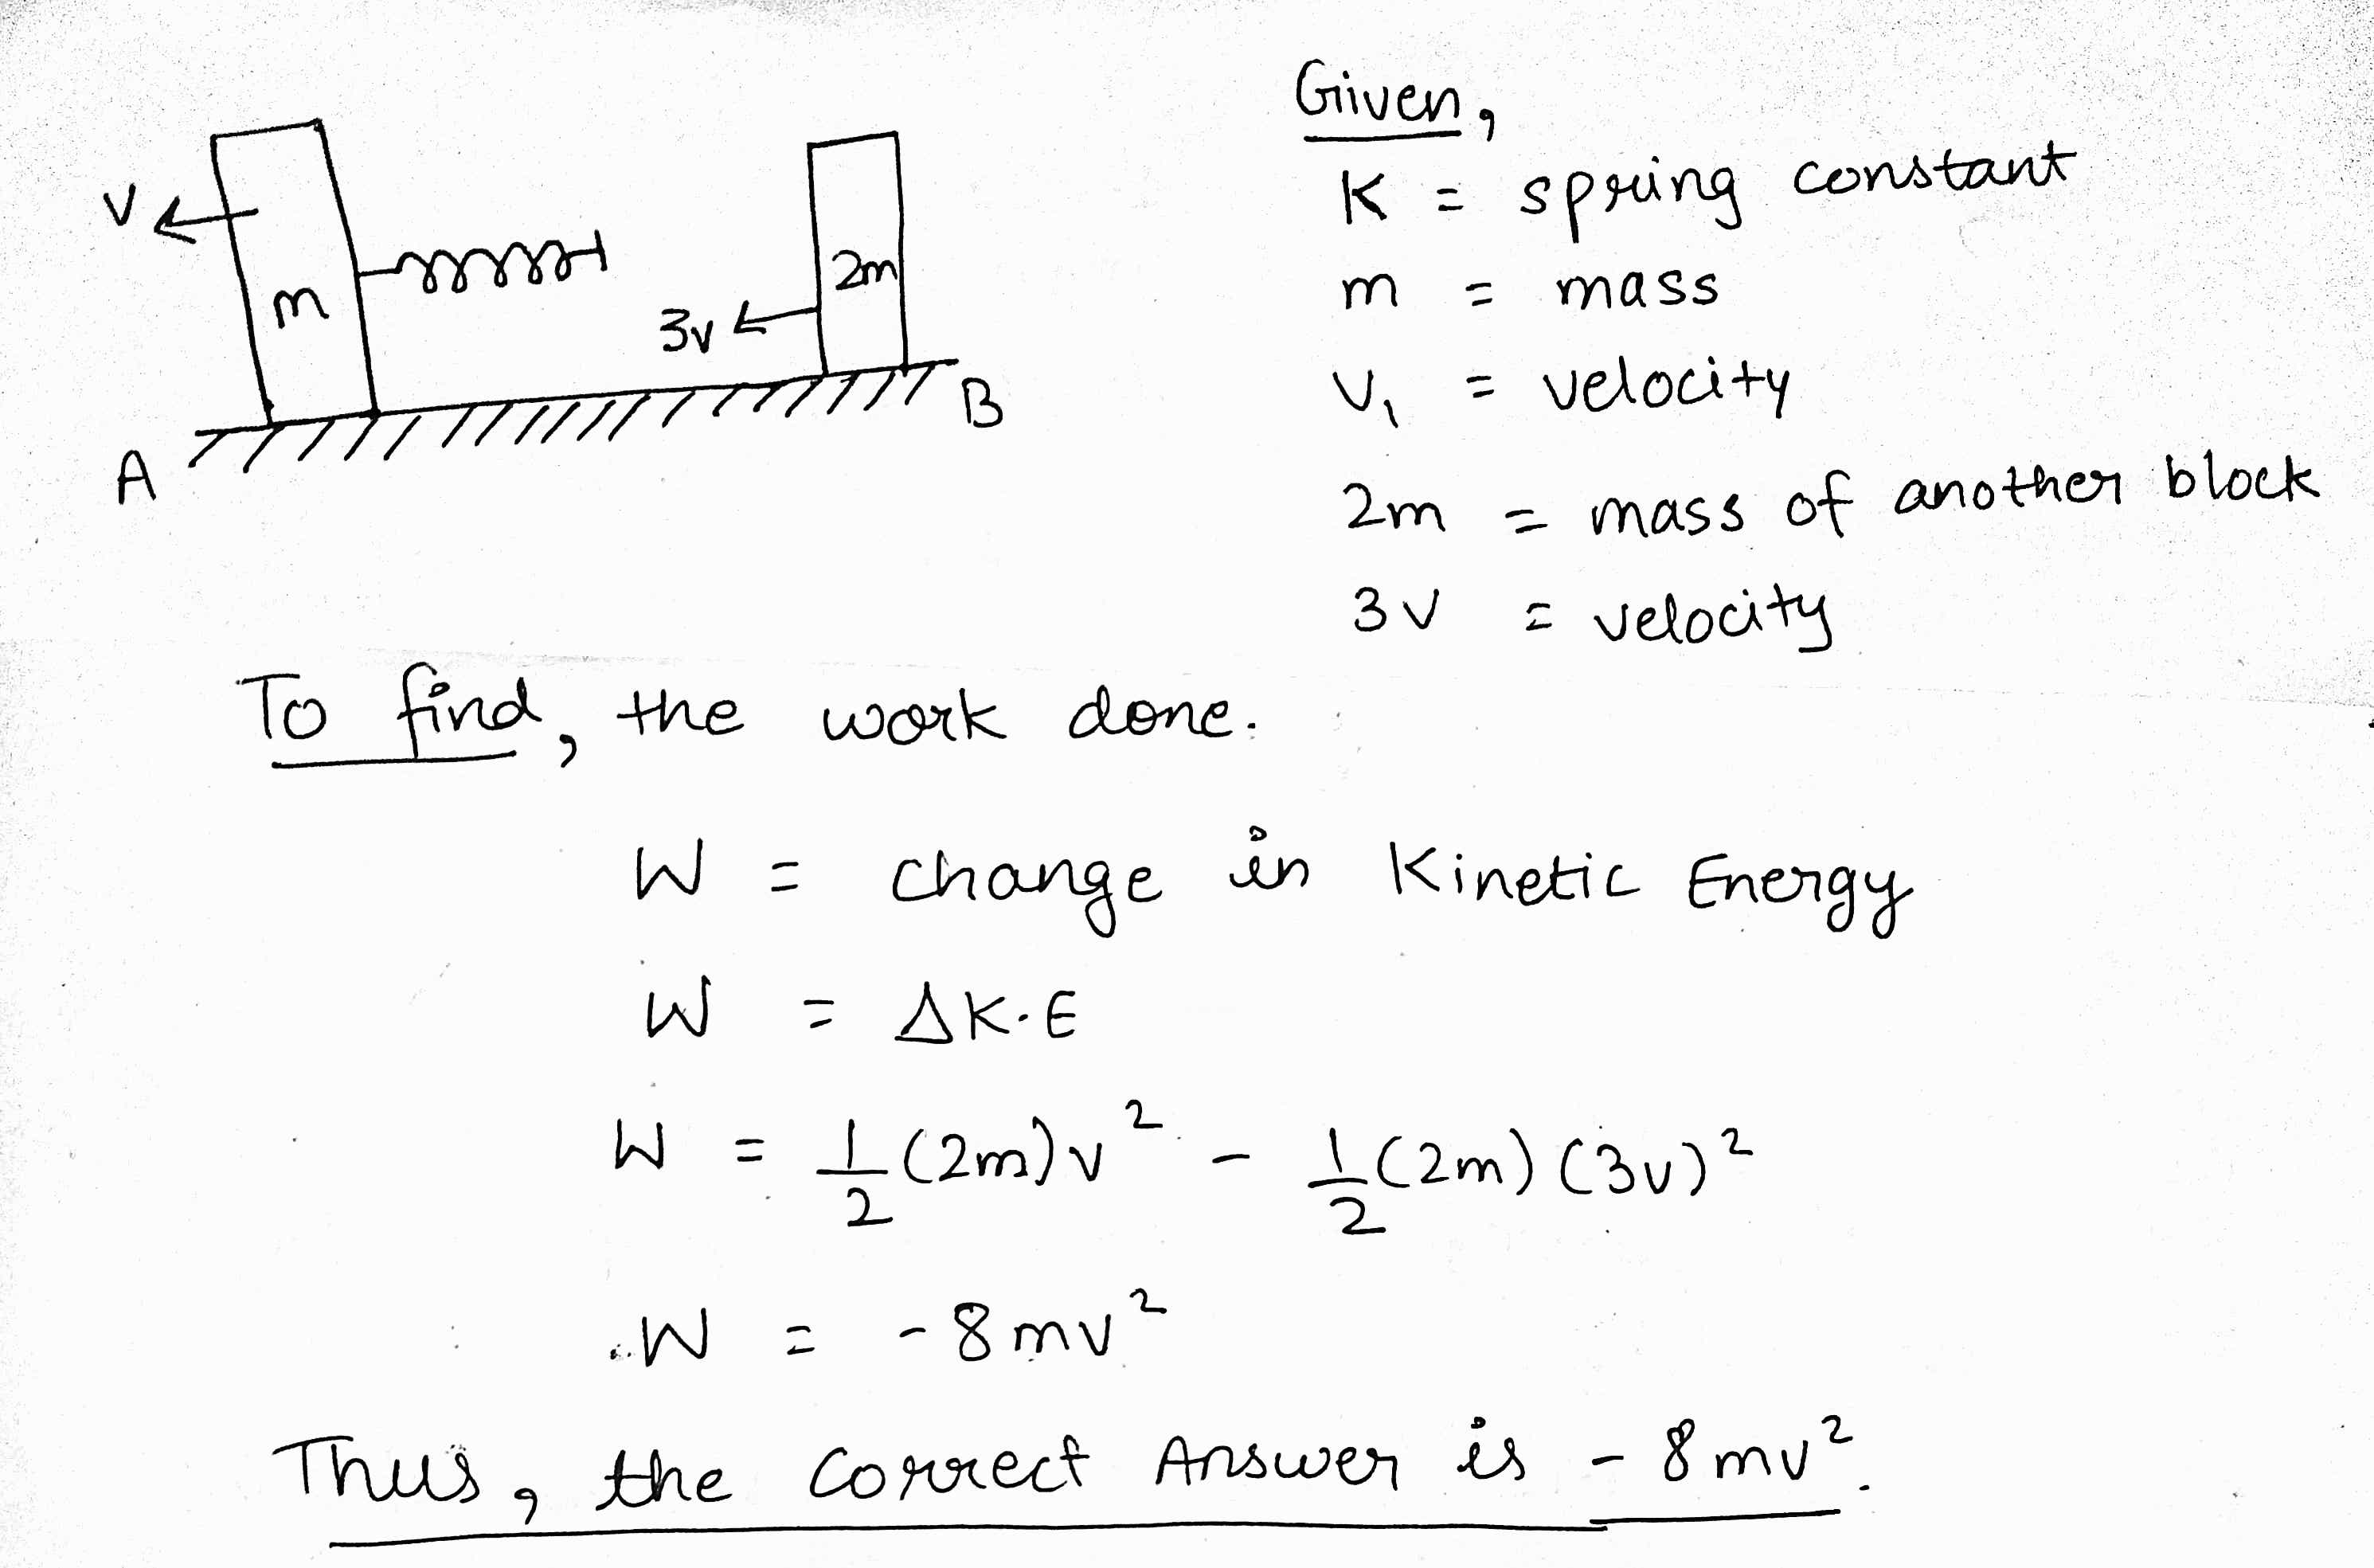 Given,
K = spring constant
m = mass
V₁ = velocity
2m = mass of another block
3V = velocity
V
m
2m
3v
A
B
To find, the work done.
W = change in Kinetic Energy
W = ΔK.E
W = 1/2 (2m)v² - 1/2 (2m) (3v)²
∴ W = -8mv²
Thus, the correct Answer is -8mv².